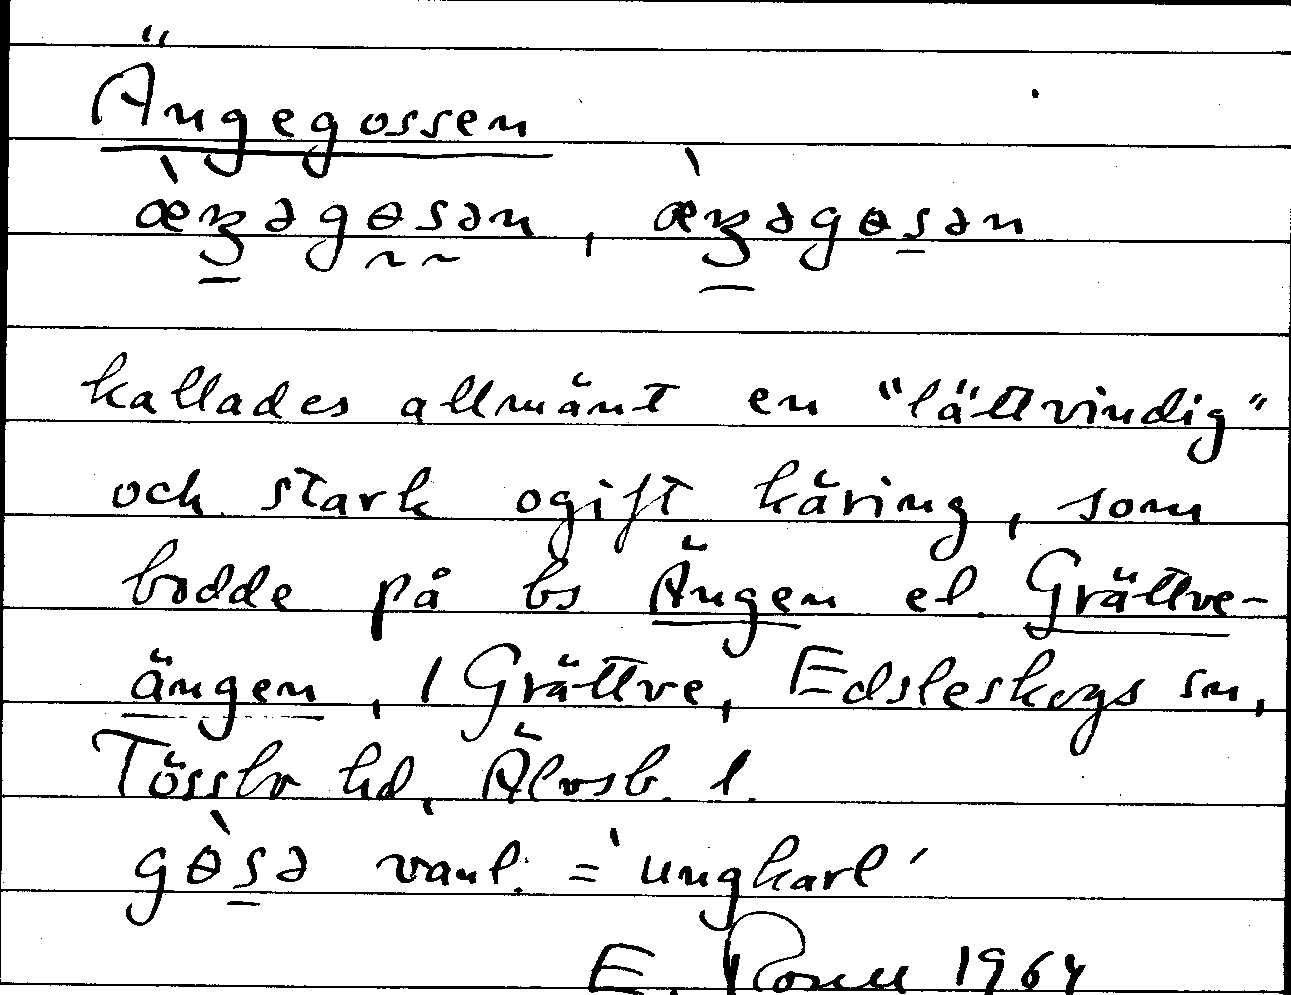 Ängegossen
æ̀ꜧəgɵsən, æ̀ꜧəgɵsən
kallades allmänt en "lättvindig"
och stark ogift käring, som
bodde på bs Ängen el. Grättve-
ängen, i Grättve, Edsleskogs sn,
Tössbo hd, Älvsb. l.
gɵ̀sə vanl. = 'ungkarl'
E. 1964